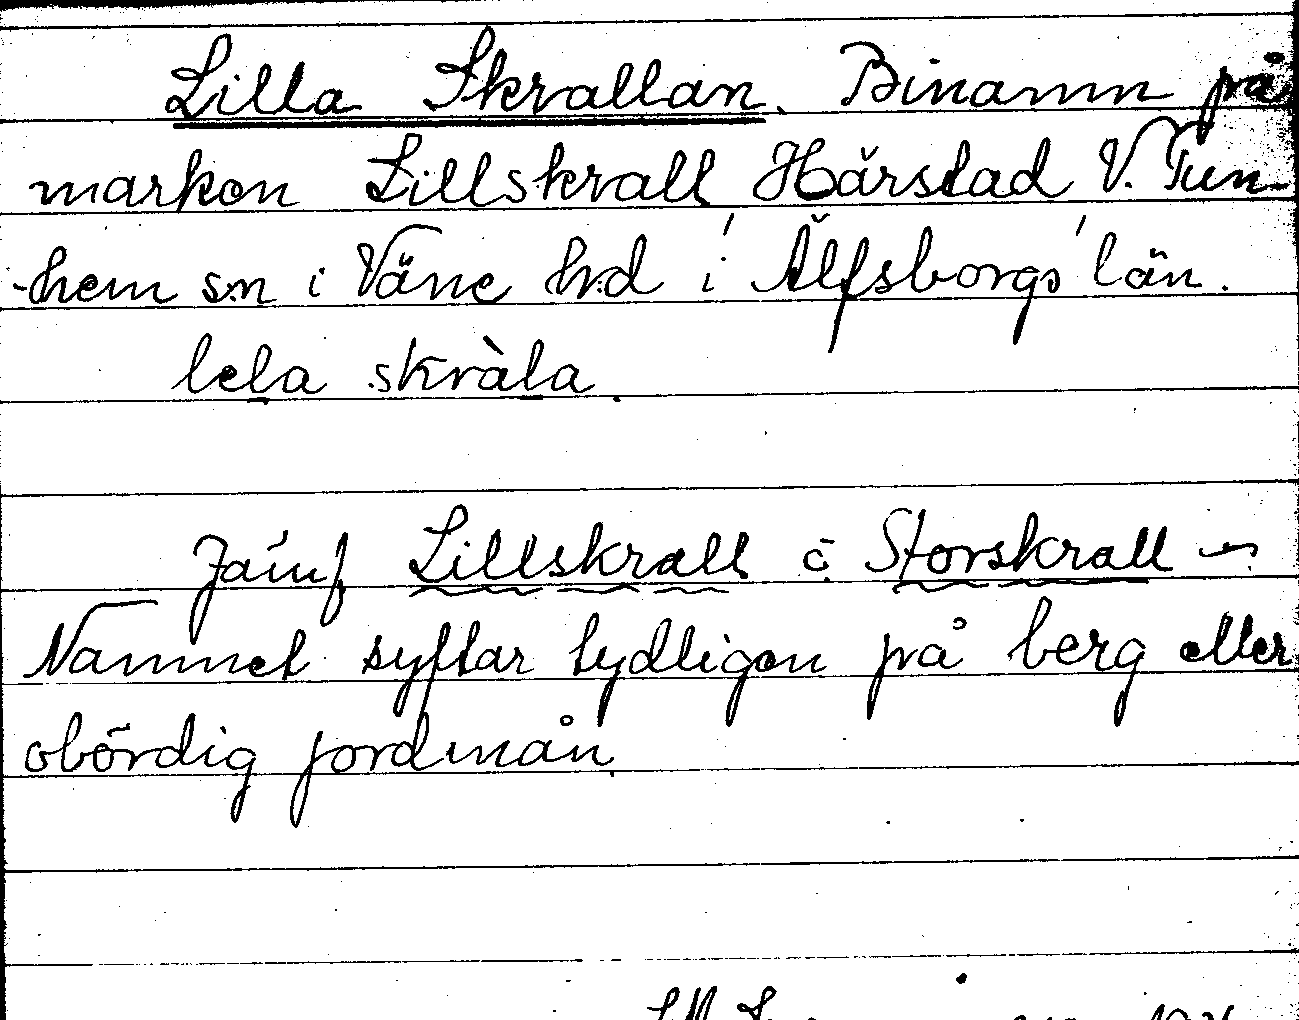 Lilla Skrallan. Binamn på
marken Lillskrall Härstad V. Tun-
-hem sn i Väne hd i Älfsborgs län.
lela skràla.
Jämf Lillskrall o. Storskrall
Namnet syftar tydligen på berg eller
obördig jordmån.